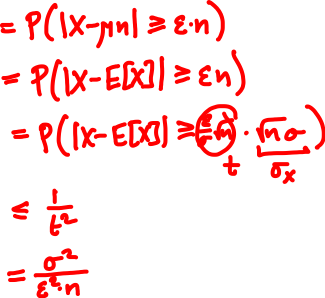 = P(|X-μn| ≥ ε·n)
= P(|X-E[X]| ≥ εn)
= P(|X-E[X]| ≥ ε/σ √n · √n σ)
t σₓ
≤ 1/t²
= σ²/ε²·n